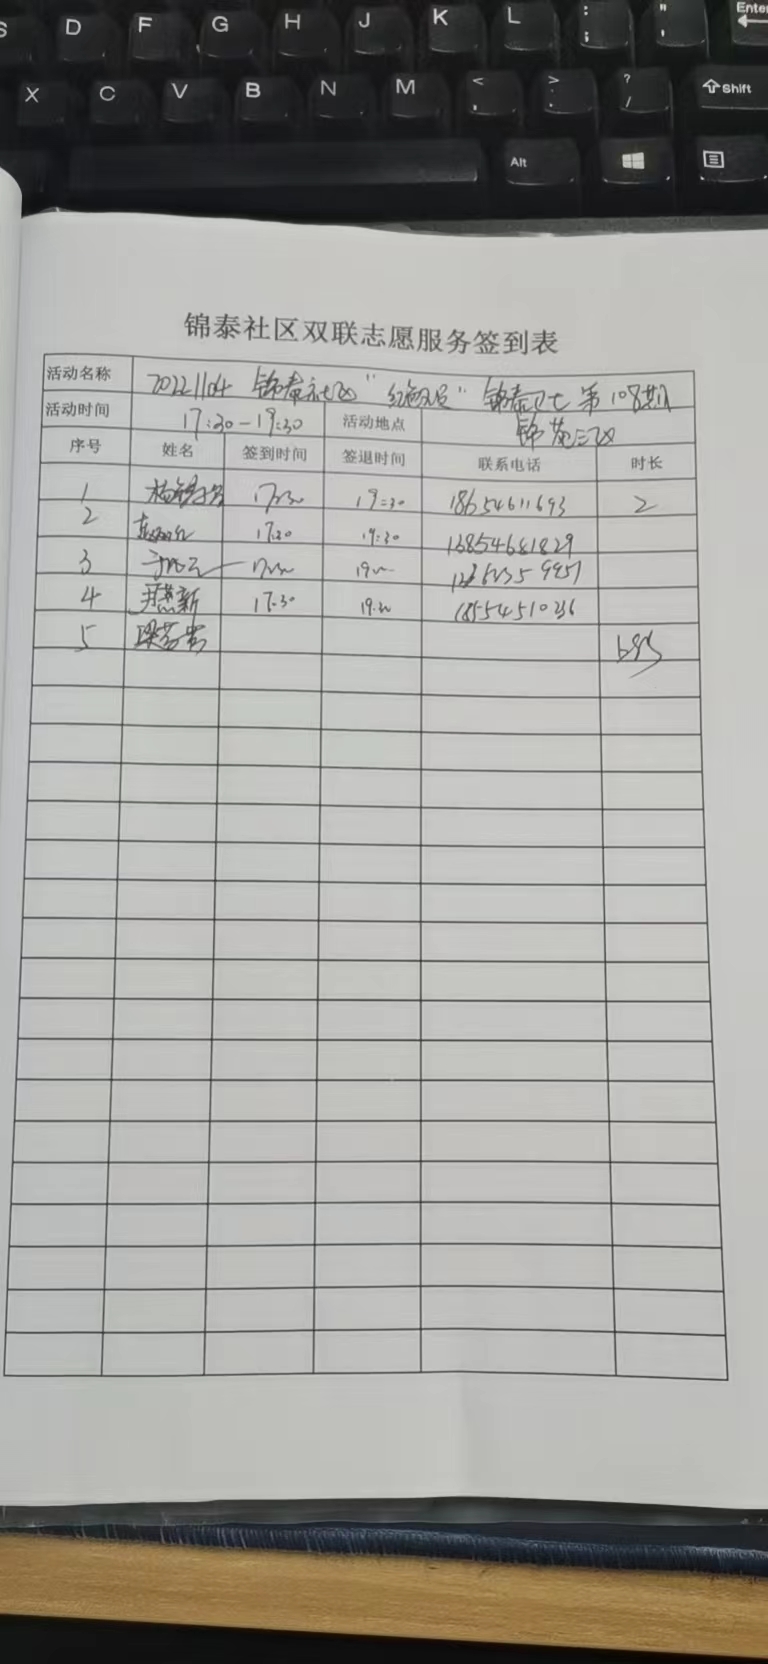 S D F G H J K L : ; " ' Enter
X C V B N M < , > . ? / Shift
Alt
锦泰社区双联志愿服务签到表
活动名称 20221104 锦泰社区“红色” 锦泰卫士 第108期
活动时间 17:30-19:30 活动地点 锦苑三区
序号 姓名 签到时间 签退时间 联系电话 时长
1 17:30 19:30 18654611693 2
2 17:30 19:30 13854681829
3
4 17:30 19:30 18554510236
5